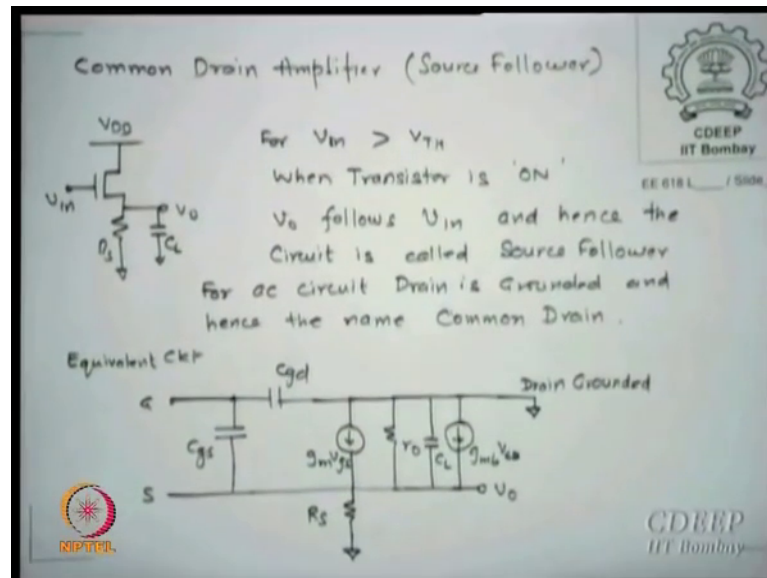 Common Drain Amplifier (Source Follower)
CDEEP
IIT Bombay
EE 618 L / Slide
VDD
Vin
Vo
CL
For Vin > VTH
When Transistor is 'ON'
Vo follows Vin and hence the
Circuit is called Source Follower
For ac circuit Drain is Grounded and
hence the name Common Drain.
Equivalent Ckt
G
Cgd
Drain Grounded
Cgs
gmVgs
ro
CL
gmb
S
Vo
Rs
NPTEL
CDEEP
IIT Bombay